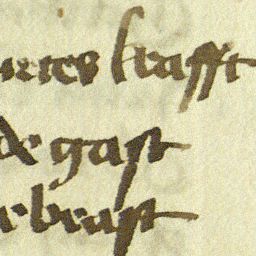 netes krafft
de gast
ebrast